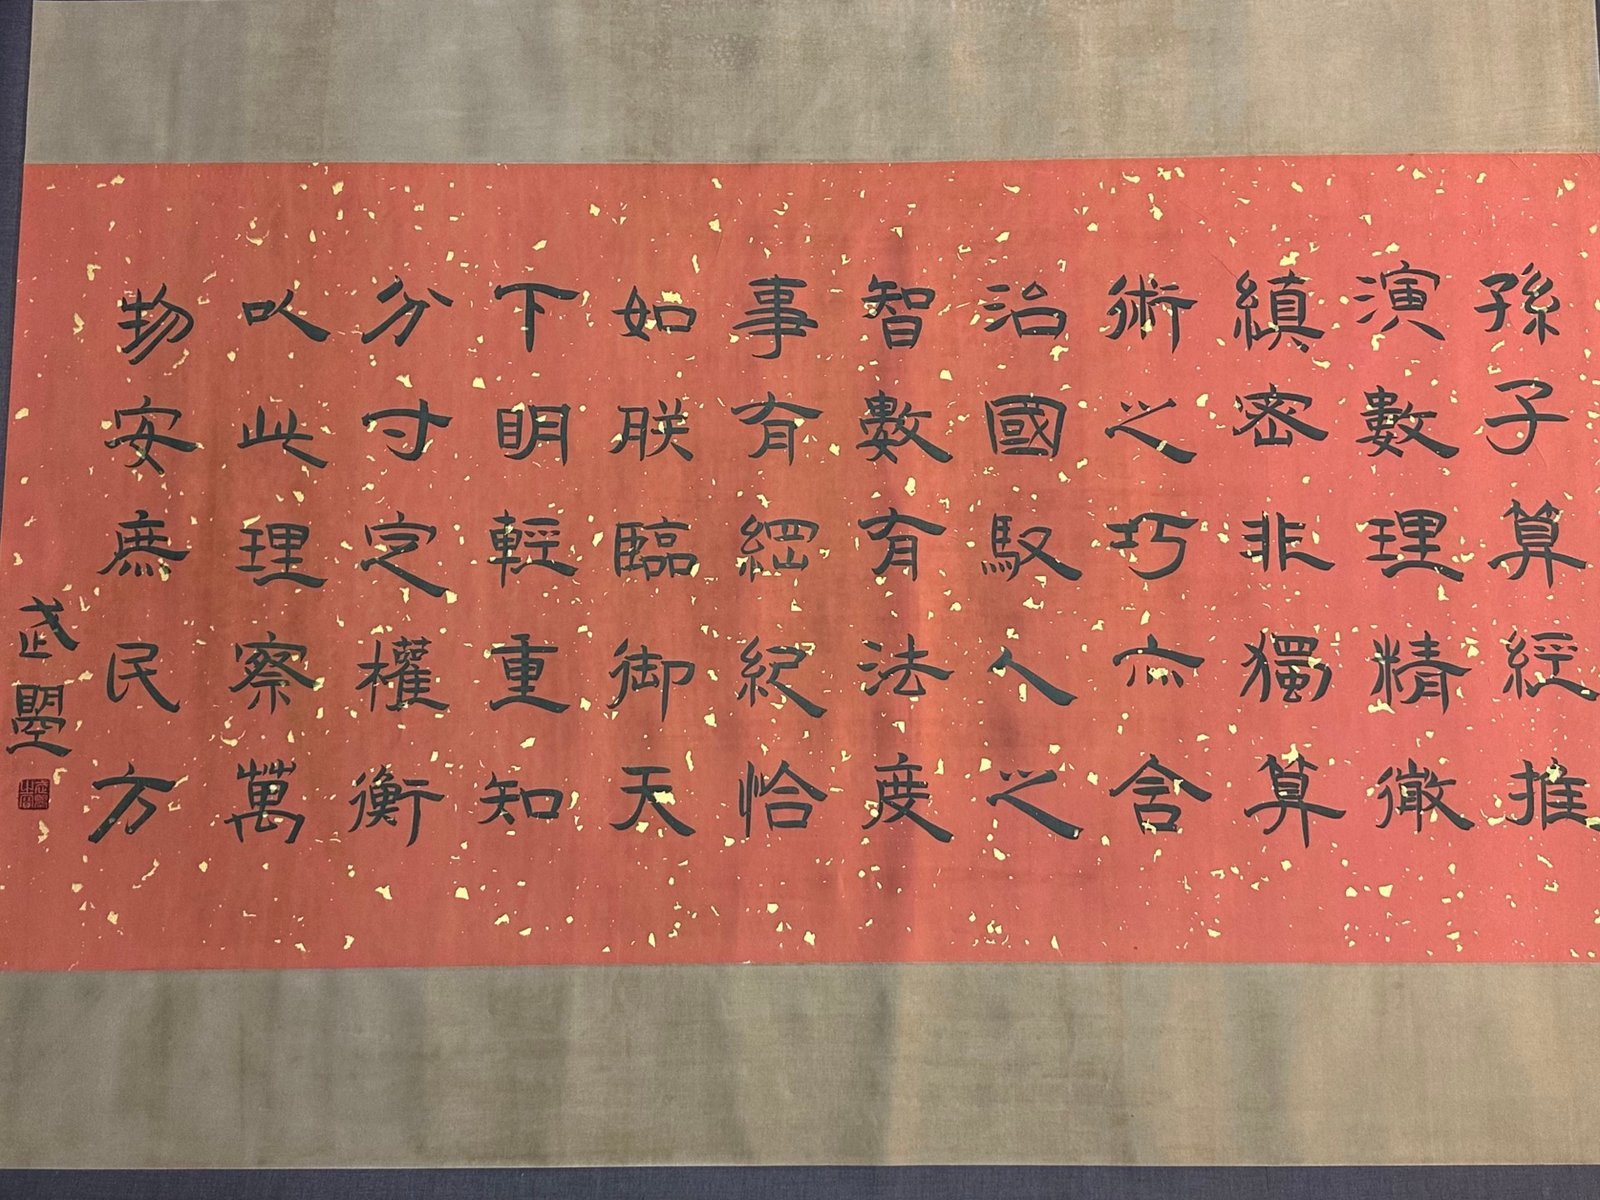 孫子算經推
演數理精徵
縝密非獨算
術之巧亦含
治國馭人之
智數有法度
事有綱紀恰
如朕臨御天
下明輕重知
分寸定權衡
以此理察萬
物安庶民方
武曌